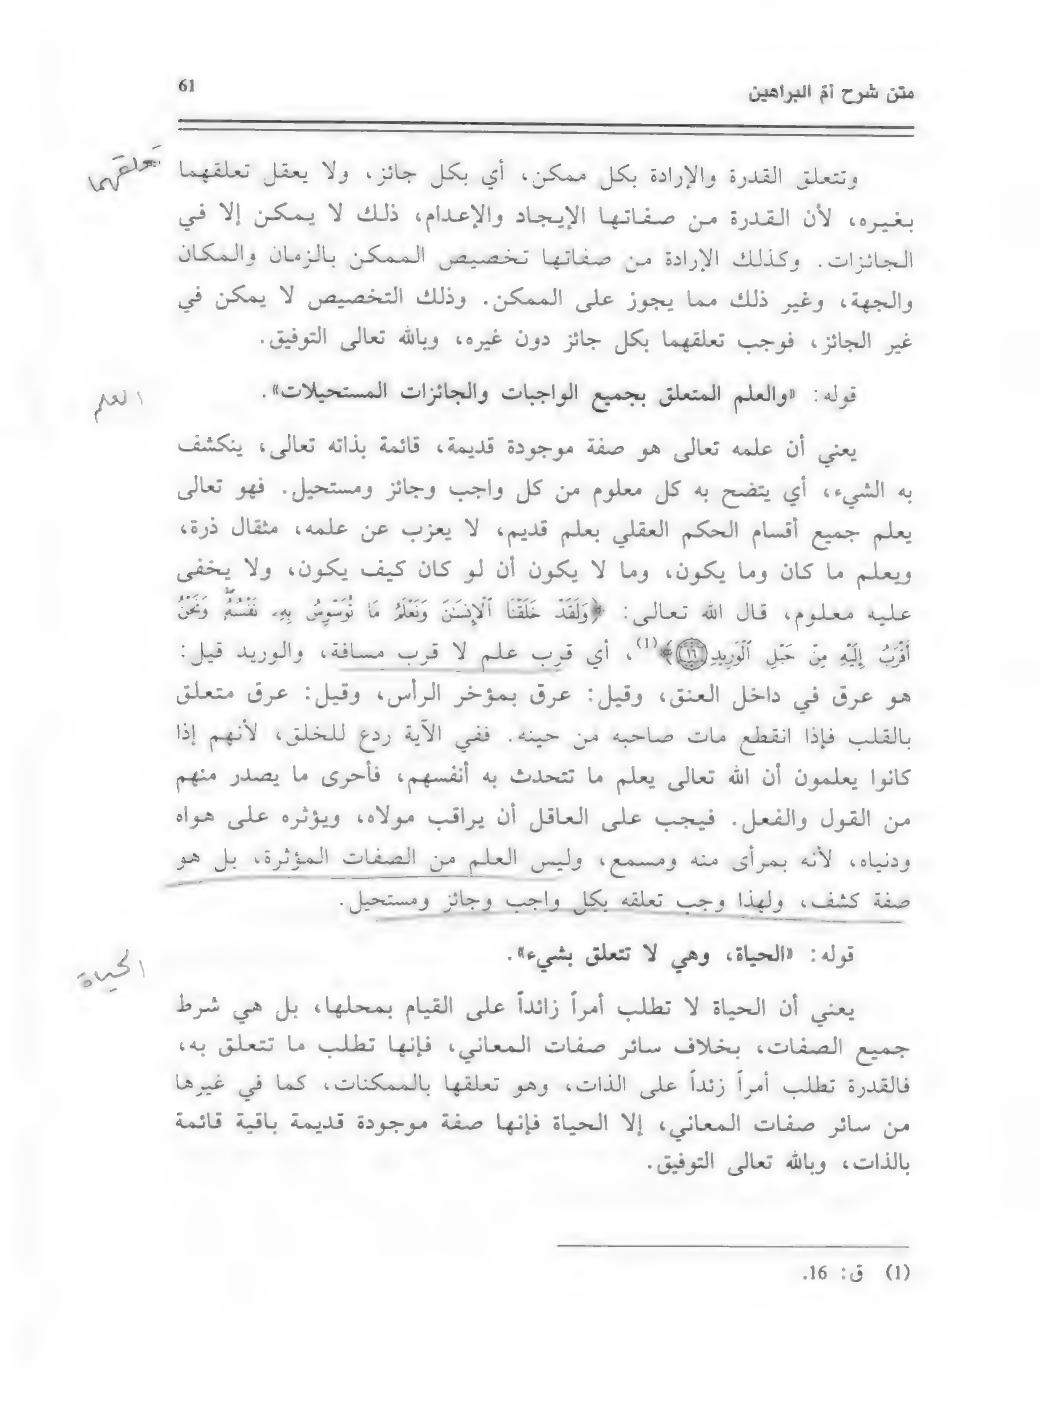 متن شرح أمّ البراهين 61
وتتعلق القدرة والإرادة بكل ممكن، أي بكل جائز، ولا يعقل تعلقهما
تعلقهما
بغيره، لأن القدرة من صفاتها الإيجاد والإعدام، ذلك لا يمكن إلا في
الجائزات. وكذلك الإرادة من صفاتها تخصيص الممكن بالزمان والمكان
والجهة، وغير ذلك مما يجوز على الممكن. وذلك التخصيص لا يمكن في
غير الجائز، فوجب تعلقهما بكل جائز دون غيره، وبالله تعالى التوفيق.
قوله: «والعلم المتعلق بجميع الواجبات والجائزات المستحيلات».
العلم
يعني أن علمه تعالى هو صفة موجودة قديمة، قائمة بذاته تعالى، ينكشف
به الشيء، أي يتضح به كل معلوم من كل واجب وجائز ومستحيل. فهو تعالى
يعلم جميع أقسام الحكم العقلي بعلم قديم، لا يعزب عن علمه، مثقال ذرة،
ويعلم ما كان وما يكون، وما لا يكون أن لو كان كيف يكون، ولا يخفى
عليه معلوم، قال الله تعالى: ﴿وَلَقَدْ خَلَقْنَا ٱلْإِنسَٰنَ وَنَعْلَمُ مَا تُوَسْوِسُ بِهِۦ نَفْسُهُۥۖ وَنَحْنُ
أَقْرَبُ إِلَيْهِ مِنْ حَبْلِ ٱلْوَرِيدِ ۝١٦﴾(1)، أي قرب علم لا قرب مسافة، والوريد قيل:
هو عرق في داخل العنق، وقيل: عرق بمؤخر الرأس، وقيل: عرق متعلق
بالقلب فإذا انقطع مات صاحبه من حينه. ففي الآية ردع للخلق، لأنهم إذا
كانوا يعلمون أن الله تعالى يعلم ما تتحدث به أنفسهم، فأحرى ما يصدر منهم
من القول والفعل. فيجب على العاقل أن يراقب مولاه، ويؤثره على هواه
ودنياه، لأنه بمرأى منه ومسمع، وليس العلم من الصفات المؤثرة، بل هو
صفة كشف، ولهذا وجب تعلقه بكل واجب وجائز ومستحيل.
قوله: «الحياة، وهي لا تتعلق بشيء».
الحياة
يعني أن الحياة لا تطلب أمراً زائداً على القيام بمحلها، بل هي شرط
جميع الصفات، بخلاف سائر صفات المعاني، فإنها تطلب ما تتعلق به،
فالقدرة تطلب أمراً زئداً على الذات، وهو تعلقها بالممكنات، كما في غيرها
من سائر صفات المعاني، إلا الحياة فإنها صفة موجودة قديمة باقية قائمة
بالذات، وبالله تعالى التوفيق.
(1) ق: 16.